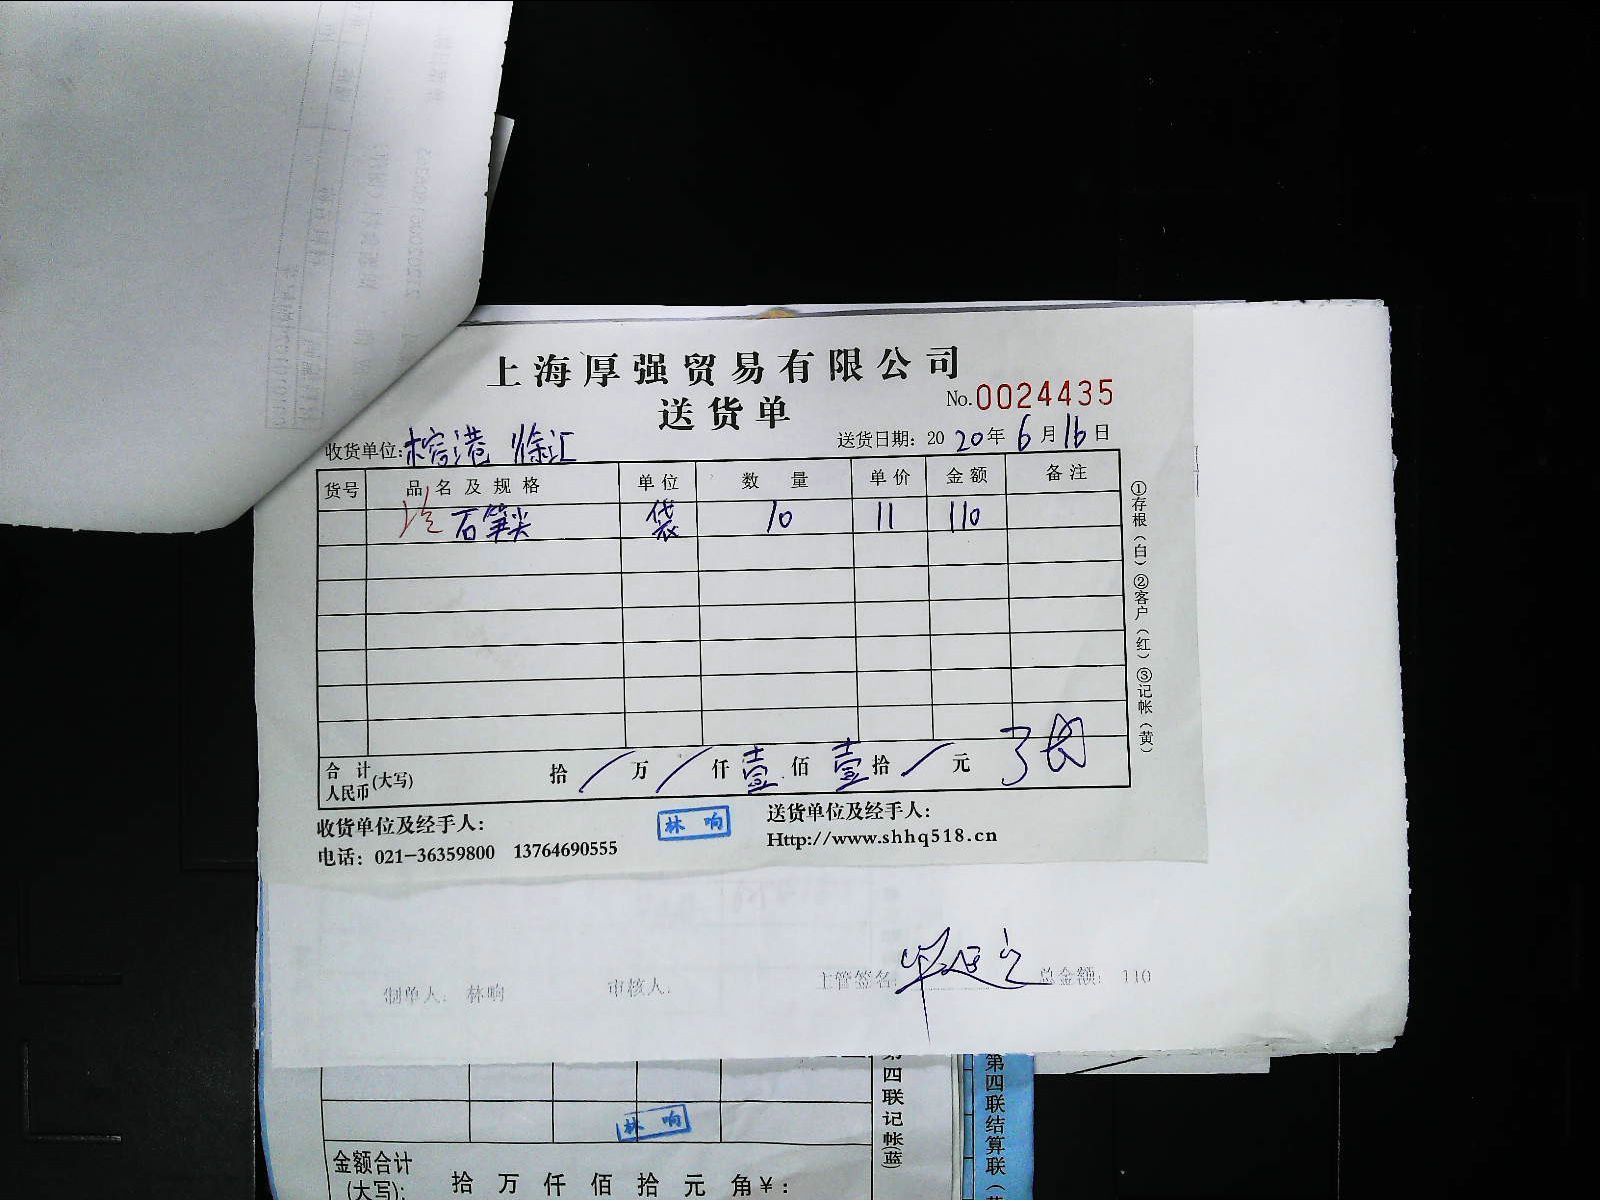 上海厚强贸易有限公司
送货单
No.0024435
收货单位:榕港 徐汇
送货日期: 2020年6月16日
货号 品名及规格 单位 数量 单价 金额 备注
石笋尖 袋 10 11 110
①存根(白)②客户(红)③记帐(黄)
合计人民币(大写) 拾/万/仟壹佰壹拾/元
收货单位及经手人:
林响
送货单位及经手人:
电话: 021-36359800 13764690555
Http://www.shhq518.cn
制单人: 林响 审核人: 主管签名: 总金额: 110
第四联记帐(蓝)
第四联结算联
林响
金额合计(大写): 拾 万 仟 佰 拾 元 角¥: